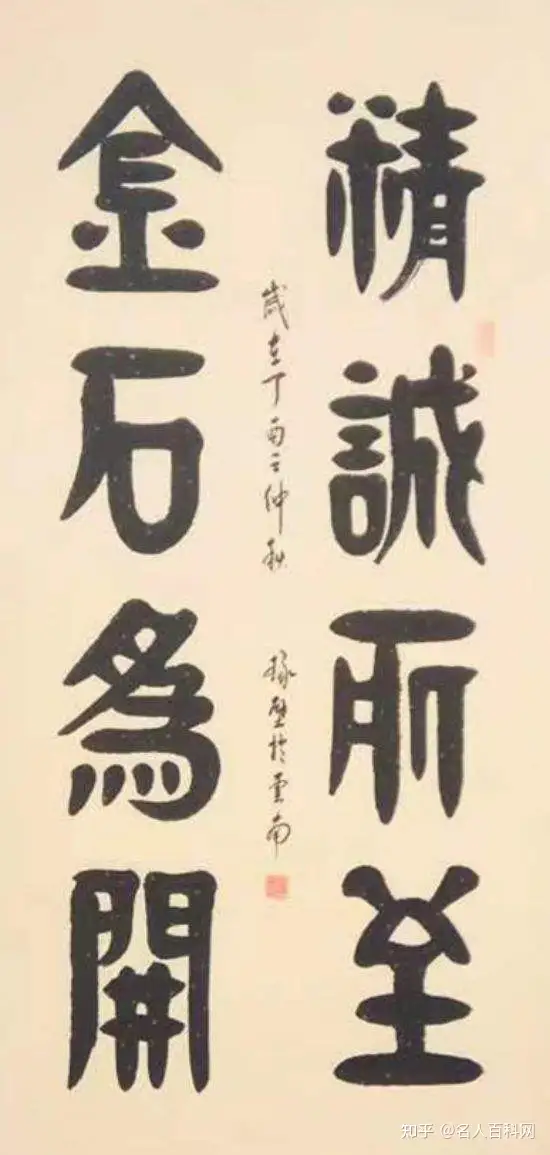 精誠所至
金石為開
歲在丁酉之仲秋
於雲南
知乎 @名人百科网